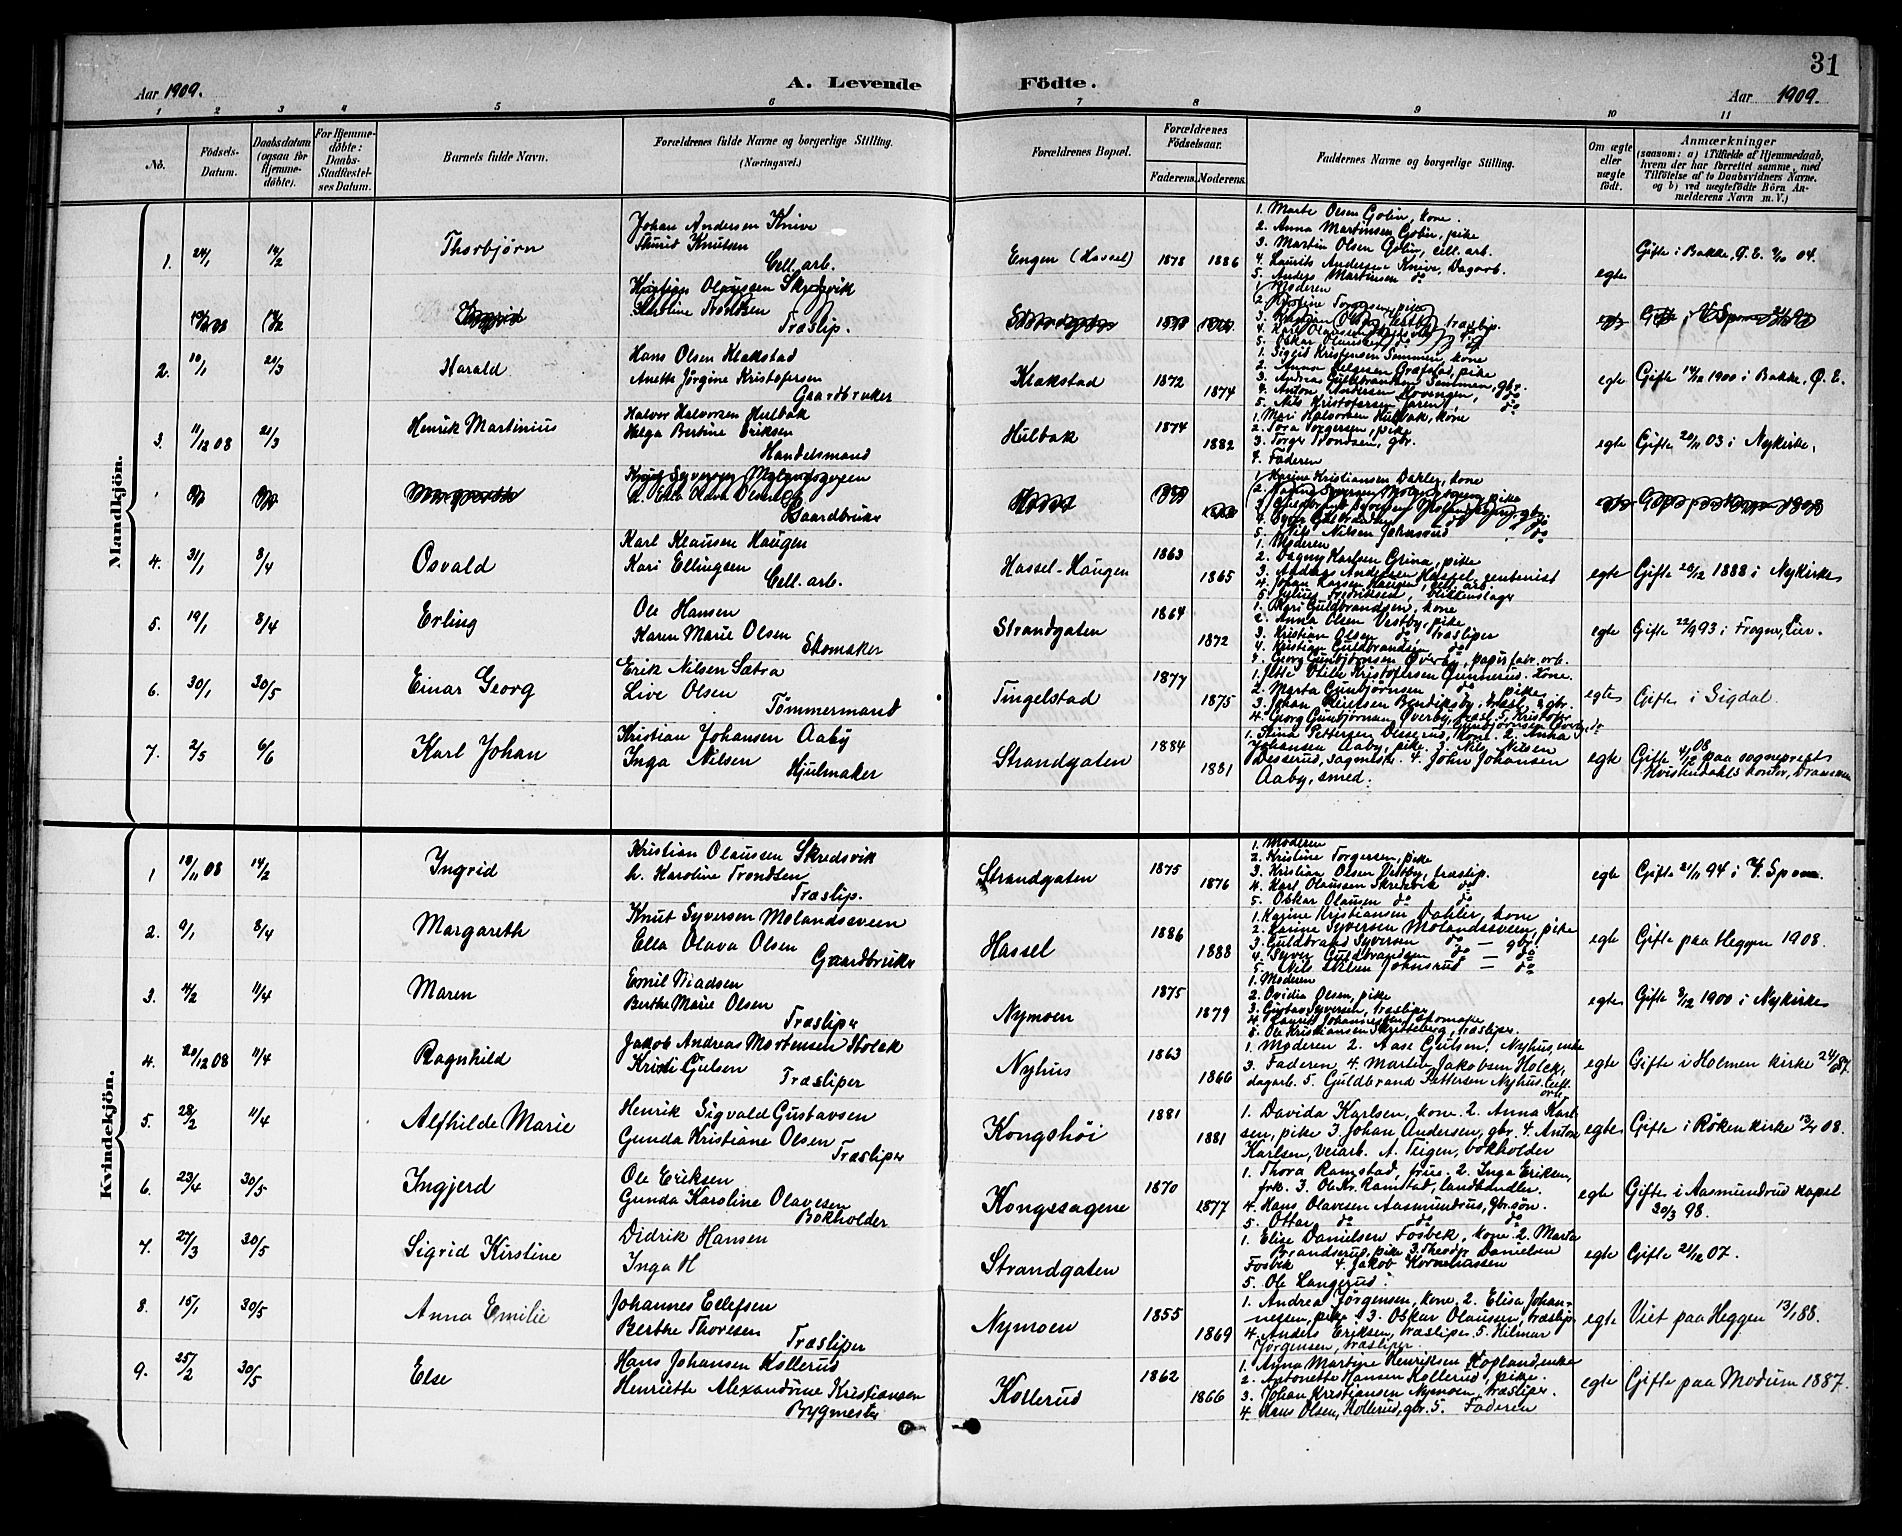 31
Aar 1909.
A. Levende Födte.
Aar 1909.
1 2 3 4 5 6 7 8 9 10 11
No.
Födsels-Datum.
Daabsdatum (ogsaa for Hjemme-døbte).
For Hjemme-døbte: Daabs-Stadfæstel-ses Datum.
Barnets fulde Navn.
Forældrenes fulde Navne og borgerlige Stilling.
(Næringsvei.)
Forældrenes Bopæl.
Forældrenes Födselsaar.
Faderens. Moderens.
Faddernes Navne og borgerlige Stilling.
Om ægte eller uægte födt.
Anmærkninger
(saasom: a) i Tilfælde af Hjemmedaab, hvem der har forrettet samme, med Tilföielse af to Daabsvidners Navne. og b) ved uægtefödte Börn An-melderens Navn m. V.)
Mandkjön.
1. 24/1 14/2 Thorbjörn
Johan Andersen Knive
Thurid Knutsen
Cell. arb.
Engen (Hassel) 1878 1886
1. Marte Olsen Golin, kone.
2. Anna Martinsen Golin, pike
3. Martin Olsen Golin, cell. arb.
4. Laurits Andersen Knive, Dagarb.
5. Anders Martinsen do
egte
Gifte i Bakke, Ø. E. 04.
Kristian Olaussen Skredsvik
Karoline Trondsen
Træslip.
1. Moderen
2. Kristine Torgersen, pike
3. Kristian Olsen Vestby, træslip.
4. Karl Olaussen Skredsvik do
5. Oskar Olaussen do
2. 10/1 21/3 Harald
Hans Olsen Klakstad
Anette Jörgine Kristofersen
Gaardbruker
Klakstad 1872 1874
1. Sigrid Kristensen Semmen, kone
2. Anna Helgesen Græfstad, pike
3. Andreas Guldbrandsen Semmen, gbr.
4. Anton Andersen Hovengen, do
5. Nils Kristofersen Jaren, do
egte
Gifte 1900 i Bakke, Ø. E.
3. 11/12 08 21/3 Henrik Martinius
Halvor Halvorsen Hulbak
Helga Bertine Eriksen
Handelsmand
Hulbak 1874 1882
1. Mari Halvorsen Hulbak, kone
2. Tora Torgersen, pike
3. Torger Trondsen, gbr.
4. Faderen
egte
Gifte 20/11 03 i Nykirke.
Knut Syversen Molandsveen
h. Ella Olava Olsen
Gaardbruker
1. Karine Kristiansen Dahler, kone
2. Karine Syversen Molandsveen, pike
3. Guldbrand Syversen Molandsveen, gbr.
4. Syver Guldbrandsen do do
5. Nils Nilsen Johnsrud do
4. 31/1 8/4 Osvald
Karl Klausen Haugen
Kari Ellingsen
Cell. arb.
Hassel-Haugen 1863 1865
1. Moderen
2. Dagny Karlsen Grina, pike
3. Andreas Andersen Hassel, rentenist
4. Johan Larsen Haugen, cell. arb.
5. Julius Fredriksen, Blikkenslager
egte
Gifte 26/12 1888 i Nykirke
5. 19/1 8/4 Erling
Ole Hansen
Karen Marie Olsen
Skomaker
Strandgaten 1864 1872
1. Mari Guldbrandsen, kone
2. Anna Olsen Vestby, pike
3. Kristian Olsen do, træsliper
4. Kristian Guldbrandsen, do
5. Georg Gunbjörnsen Överby, papirfabr. arb.
egte
Gifte 22/9 93 i Frogner, Lier.
6. 30/1 30/5 Einar Georg
Erik Nilsen Sætra
Live Olsen
Tömmermand
Tingelstad 1877 1875
1. Jette Otilie Kristofersen Gunnerus, kone.
2. Marta Gunbjörnsen do pike
3. Johan Reiersen Bendiksby, træsl., gbr.
4. Georg Gunbjörnsen Överby, træsl. 5. Kristofer Gunbjörnsen Överby do
egte
Gifte i Sigdal.
7. 2/5 6/6 Karl Johan
Kristian Johansen Aaby
Inga Nilsen
Hjulmaker
Strandgaten 1884 1881
1. Stina Pettersen Desserud, kone. 2. Anna
Johansen Aaby, pike. 3. Nils Nilsen
Desserud, sagmestr. 4. John Johansen
Aaby, smed.
egte
Gifte 4/12 08 paa sogneprest
Hvistendahls kontor, Drammen
Kvindekjön.
1 18/11 08 14/2 Ingrid
Kristian Olaussen Skredsvik
h. Karoline Trondsen
Træslip.
Strandgaten 1875 1876
1. Moderen
2. Kristine Torgersen, pike
3. Kristian Olsen Vestby, træslip.
4. Karl Olaussen Skredsvik do
5. Oskar Olausen do do
egte
Gifte 21/11 94 i V. Spone.
2. 9/1 8/4 Margareth
Knut Syversen Molandsveen
Ella Olava Olsen
Gaardbruker
Hassel 1886 1888
1. Karine Kristiansen Dahler, kone
2. Karine Syversen Molandsveen, pike
3. Guldbrand Syversen do — gbr.
4. Syver Guldbrandsen do — do
5. Nils Nilsen Johnsrud — do
egte
Gifte paa Heggen 1908.
3. 11/2 11/4 Maren
Emil Madsen
Berthe Marie Olsen
Træsliper
Nymoen 1875 1879
1. Moderen
2. Ovidia Olsen, pike
3. Gustav Syversen, træsliper
4. Laurits Johannessen, skomaker
5. Ole Kristiansen Skretteberg, træsliper.
egte
Gifte 8/12 1900 i Nykirke
4. 20/12 08 11/4 Ragnhild
Jakob Andreas Mortensen Holek
Kristi Gjulsen
Træsliper
Nyhus 1863 1866
1. Moderen 2. Aase Gulsen, Nyhus, enke
3. Faderen, 4. Martin Jakobsen Holek,
dagarb. 5. Guldbrand Pettersen Nyhus, Cell. arb.
egte
Gifte i Holmen kirke 24/6 87.
5. 28/2 11/4 Alfhilde Marie
Henrik Sigvald Gustavsen
Gunda Kristiane Olsen
Træsliper
Kongshöi 1881 1881
1. Davida Karlsen, kone. 2. Anna Karl-
sen, pike 3. Johan Andersen, gbr. 4. Anton
Karlsen, veiarb. A. Teigen, bokholder
egte
Gifte i Röken kirke 08.
6. 23/4 30/5 Ingjerd
Ole Eriksen
Gunda Karoline Olavesen
Bokholder
Kongssagene 1870 1877
1. Thora Ramstad, frue. 2. Inga Eriksen,
frk. 3. Ole Kr. Ramstad, landhandler.
4. Hans Olavesen Aasmundrud, gbr.sön.
5. Ottar do do do
egte
Gifte i Aasmundrud kapel
30/3 98.
7. 27/3 30/5 Sigrid Kirstine
Didrik Hansen
Inga H
Strandgaten
1. Elise Danielsen Fosbek, kone. 2. Marta
Brandserud, pike 3. Theodor Danielsen
Fosbek 4. Jakob Korneliussen
5. Ole Langerud.
egte
Gifte 21/12 07.
8. 15/1 30/5 Anna Emilie
Johannes Edefsen
Berthe Thoresen
Træsliper
Nymoen 1855 1869
1. Andrea Jörgensen, kone. 2. Elisa Johan-
nessen, pike. 3. Oskar Olaussen, træsliper
4. Anders Eriksen, træsliper. 5. Hilmar
Jörgensen, træsliper.
egte
Viet paa Heggen 13/1 88.
9. 25/2 30/5 Else
Hans Johansen Kollerud
Henriette Alexandrine Kristiansen
Bygmester
Kollerud 1862 1866
1. Anna Martine Henriksen Hopland, enke
2. Antonette Hansen Kollerud, pike.
3. Johan Kristiansen Nymoen, træsliper.
4. Hans Olsen, Kollerud, gbr. 5. Faderen
egte
Gifte paa Modum 1887.